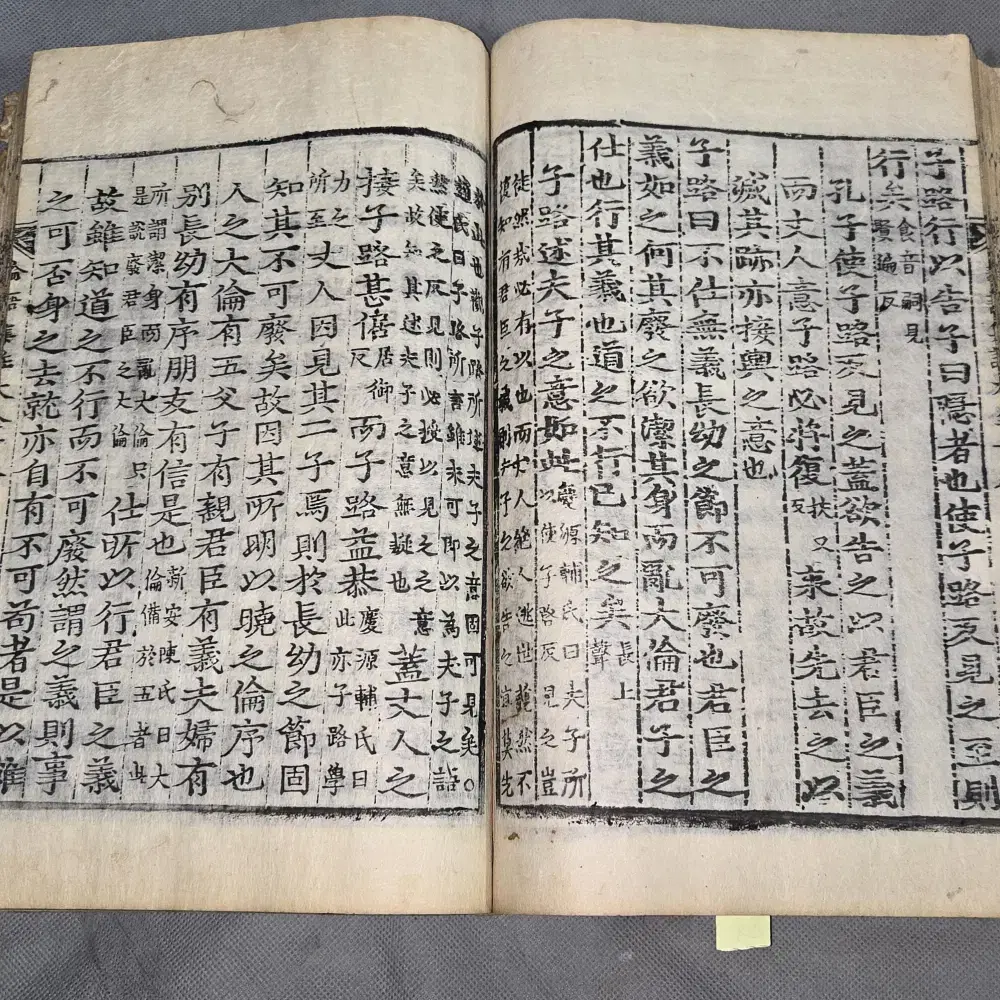 子路行以告子曰隱者也使子路反見之至則
行矣食音嗣見賢遍反
孔子使子路反見之蓋欲告之以君臣之義
而丈人意子路必將復扶又反來故先去之以
滅其跡亦接輿之意也
子路曰不仕無義長幼之節不可廢也君臣之
義如之何其廢之欲潔其身而亂大倫君子之
仕也行其義也道之不行已知之矣長上聲
子路述夫子之意如此慶源輔氏曰夫子所以使子路反見之豈
徒然哉必有以也而丈人絶人逃世然不知有君臣之義則夫子之欲告之莫先
於此也觀子路所述夫子之意固可見矣○趙氏曰子路所言雖未可即以為夫子之語
然使之反見則必授以見之之意矣故知其述夫子之意無疑也蓋丈人之
接子路甚倨居御反而子路益恭慶源輔氏曰此亦子路學
力之所至丈人因見其二子焉則於長幼之節固
知其不可廢矣故因其所明以曉之倫序也
人之大倫有五父子有親君臣有義夫婦有
別長幼有序朋友有信是也新安陳氏曰大倫備於五者此
所謂潔身而亂大倫只是說廢君臣之大倫仕所以行君臣之義
故雖知道之不行而不可廢然謂之義則事
之可否身之去就亦自有不可苟者是以雖
論語集註大